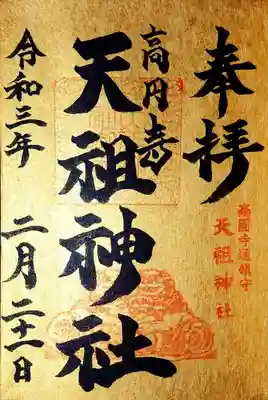 奉拝
高円寺
天祖神社
令和三年
二月二十一日
高圓寺邨鎮守
天祖神社